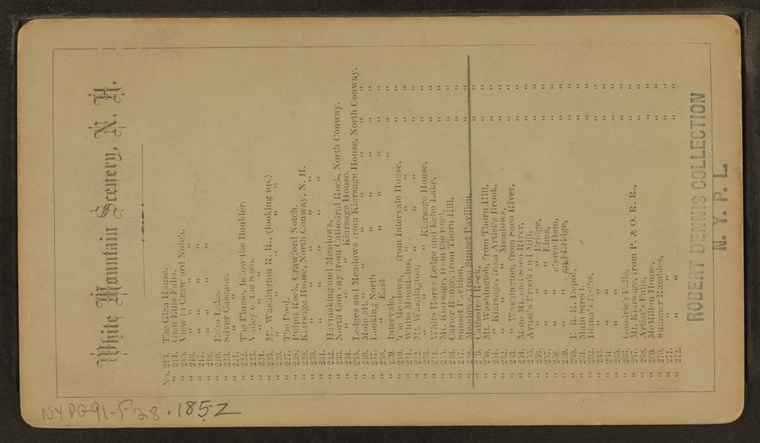 White Mountain Scenery, N. H.
No. 213. The Glen House.
" 214. Glen Ellis Falls.
" 215. View in Crawford Notch.
" 216. " " "
" 217. " " "
" 218. " " "
" 219. Echo Lake.
" 220. Silver Cascade.
" 221. " "
" 222. The Flume, below the Boulder.
" 223.
" 224. Mt. Washington R. R., (looking up.)
" 225. " " "
" 226. The Pool.
" 227. Pulpit Rock, Crawford Notch.
" 228. Kiarsage House, North Conway, N. H.
" 229. " " "
" 230. " " "
" 231. " " "
" 232. Haymaking and Meadows,
" 233. North Conway from Cathedral Rock, North Conway.
" 234. " " " Kiarsage House.
" 235. Ledges and Meadows from Kiarsage House, North Conway.
" 236. Main St.
" 237. Looking North
" 238. " East
" 239. Intervale,
" 240. The Meadows, from Intervale House,
" 241. White Mountains, " "
" 242. Mt. Washington, " "
" 243. " " Kiarsage House,
" 244. White Horse Ledge and Echo Lake,
" 245. Mt. Kiarsage, from the road,
" 246. Conway from Thorn Hill,
" 247. Sunset Pavilion,
" 248. Meadows, from Sunset Pavilion,
" 249. Cathedral Rock,
" 250. Mt. Washington, from Thorn Hill,
" 251. " Kiarsage, and Artist's Brook,
" 252. " " Meadows,
" 253. " Washington, from Saco River,
" 254. Moat Mt. and Saco River,
" 255. Artist's Brook and Mill,
" 256. " " Bridge,
" 257. " " Elms,
" 258. " " above Dam,
" 259. " " and Bridge,
" 260. E. R. R. Depot,
" 261. Main Street,
" 262. Diana's Baths,
" 263. " "
" 264. " "
" 265. " "
" 266. Goodrich Falls,
" 267. Mt. Kiarsage, from P. & O. R. R.,
" 268. Artist's Falls,
" 269. McMillen House,
" 270. Summer Rambles,
" 271. " "
" 272. " "
ROBERT DENNIS COLLECTION
N. Y. P. L
NYPG91-F28.1852